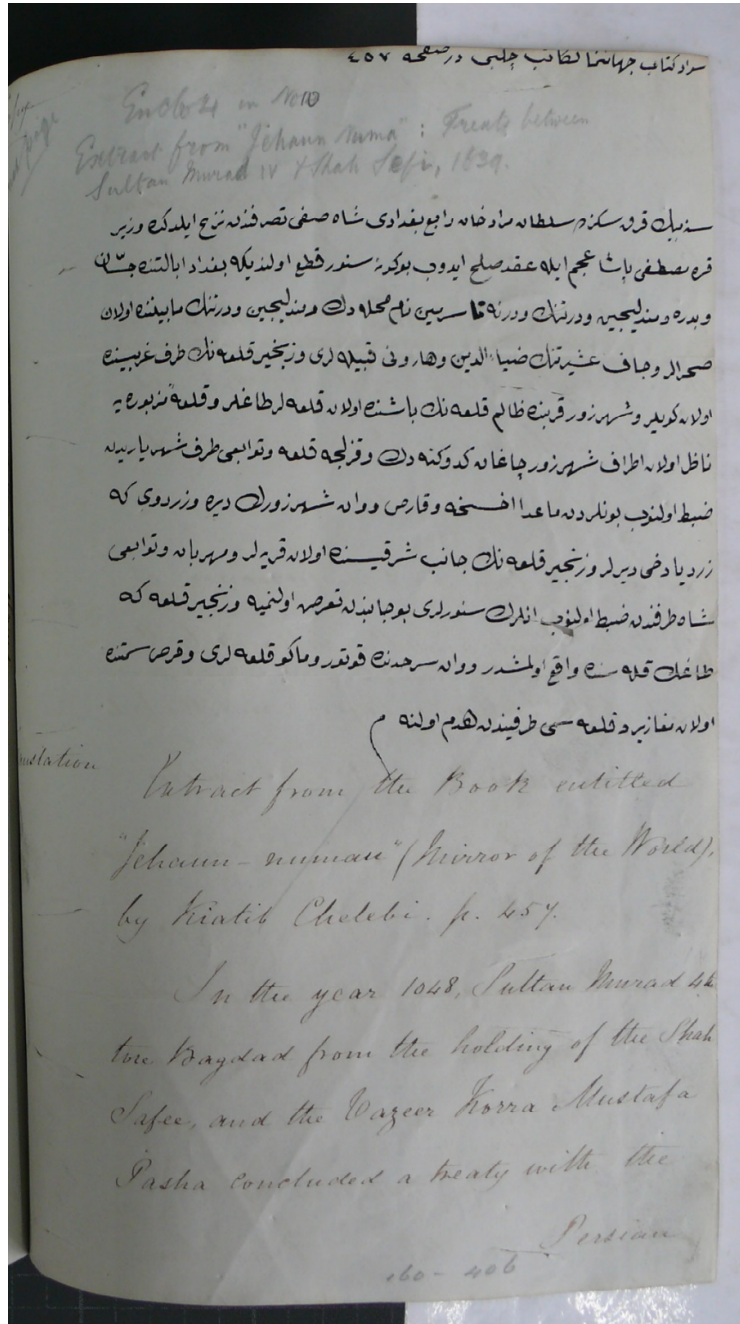 سواد کتاب جهاننما لکاتب چلبی در صفحه ٤٥٧
Enclo 4 in No 10
Extract from "Jehaun Numa": Treaty between
Sultan Murad IV & Shah Sefi, 1639.
سنه بیك قرق سکزده سلطان مراد خان رابع بغدادی شاه صفی تصرفندن نزع ایلدکده وزیر
قره مصطفی پاشا عجم ایله عقد صلح ایدوب بوکونه سنور قطع اولندیکه بغداد ایالتنده جسّان
و بدره و مندلیجین و درتنك و درنه تا سرمین نام محله دك و مندلیجین و درتنك مابیننده اولان
صحرالر و جاف عشیرتنك ضیاءالدین و هارونی قبیله لری و زنجیر قلعه نك طرف غربیسنده
اولان کویلر و شهرزور قربنده ظالم قلعه نك باشنده اولان قلعه لر طاغلر و قلعهٔ مزبوره یه
ناظر اولان اطراف شهرزور چاغان کدوکنه دك و قزلجه قلعه و توابعی طرف شهریاریدن
ضبط اولنوب بونلردن ماعدا اخسخه و قارص و وان شهرزورك دیره و زردوی که
زردیا دخی دیرلر و زنجیر قلعه نك جانب شرقیسنده اولان قریه لر و مهربان و توابعی
شاه طرفندن ضبط اولنوب انلرك سنورلری بو جانبدن تعرض اولنمیه و زنجیر قلعه که
طاغك قله سنده واقع اولمشدر و وان سرحدنده قوتور و ماکو قلعه لری و قرص سمتنده
اولان مغازبرد قلعه سی طرفیندن هدم اولنه م
Translation
Extract from the Book entitled
"Jehaun-numau" (Mirror of the World),
by Kiatib Chelebi. p. 457.
In the year 1048, Sultan Murad 4th
tore Bagdad from the holding of the Shah
Safee, and the Vazeer Korra Mustafa
Pasha concluded a treaty with the
Persian
160 - 406